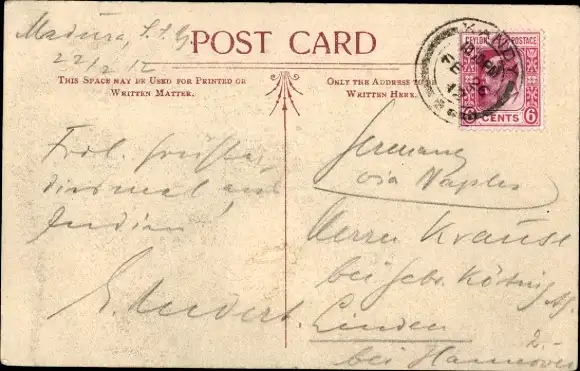 Madura, S.I.
22/2 12
POST CARD
THIS SPACE MAY BE USED FOR PRINTED OR
WRITTEN MATTER.
ONLY THE ADDRESS TO
WRITTEN HERE.
KANDY
CEYLON POSTAGE
6 CENTS 6
diesmal aus
Indien!
Germany
via Naples
Herrn Krause
bei Gebr. Körting AG.
Linden
bei Hannover
2.-